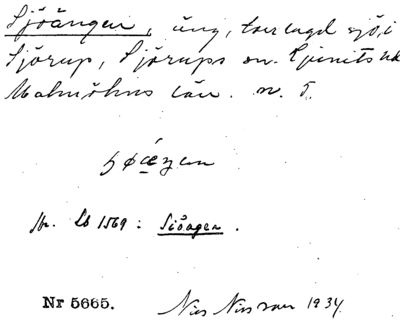 Sjöängen, äng, torrlagd sjö, i
Sjörup, Sjörups sn. Ljunits hd
Malmöhus län. n. 5.
Jr. Lb 1569: Siöagen.
Nr 5665.
Nils Nilsson 1934